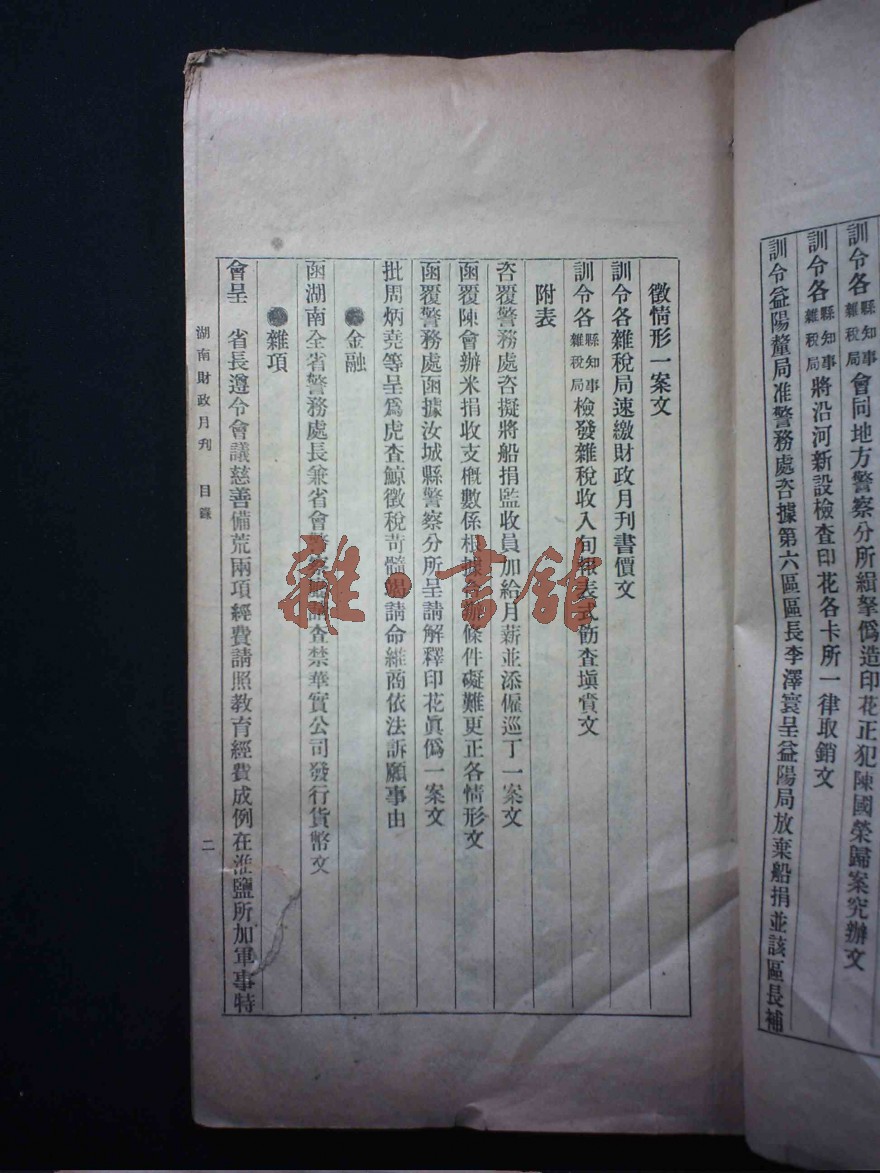 訓令各縣知事雜稅局會同地方警察分所緝拏僞造印花正犯陳國榮歸案究辦文
訓令各縣知事雜稅局將沿河新設檢查印花各卡所一律取銷文
訓令益陽釐局准警務處咨據第六區區長李澤寰呈益陽局放棄船捐並該區長補
徵情形一案文
訓令各雜稅局速繳財政月刊書價文
訓令各縣知事雜稅局檢發雜稅收入旬報表式飭查塡賫文
附表
咨覆警務處咨擬將船捐監收員加給月薪並添僱巡丁一案文
函覆陳會辦米捐收支槪數係根據合辦條件礙難更正各情形文
函覆警務處函據汝城縣警察分所呈請解釋印花眞僞一案文
批周炳堯等呈爲虎查鯨徵稅苛髓竭請命維商依法訴願事由
●金融
函湖南全省警務處長兼省會警察廳請查禁華實公司發行貨幣文
●雜項
會呈 省長遵令會議慈善備荒兩項經費請照敎育經費成例在淮鹽所加軍事特
湖南財政月刊 目錄 二
雜·書館